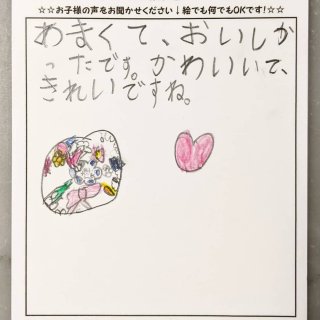 ☆☆お子様の声をお聞かせください↓絵でも何でもOKです!☆☆
あまくて、おいしか
ったです。かわいいて、
きれいですね。